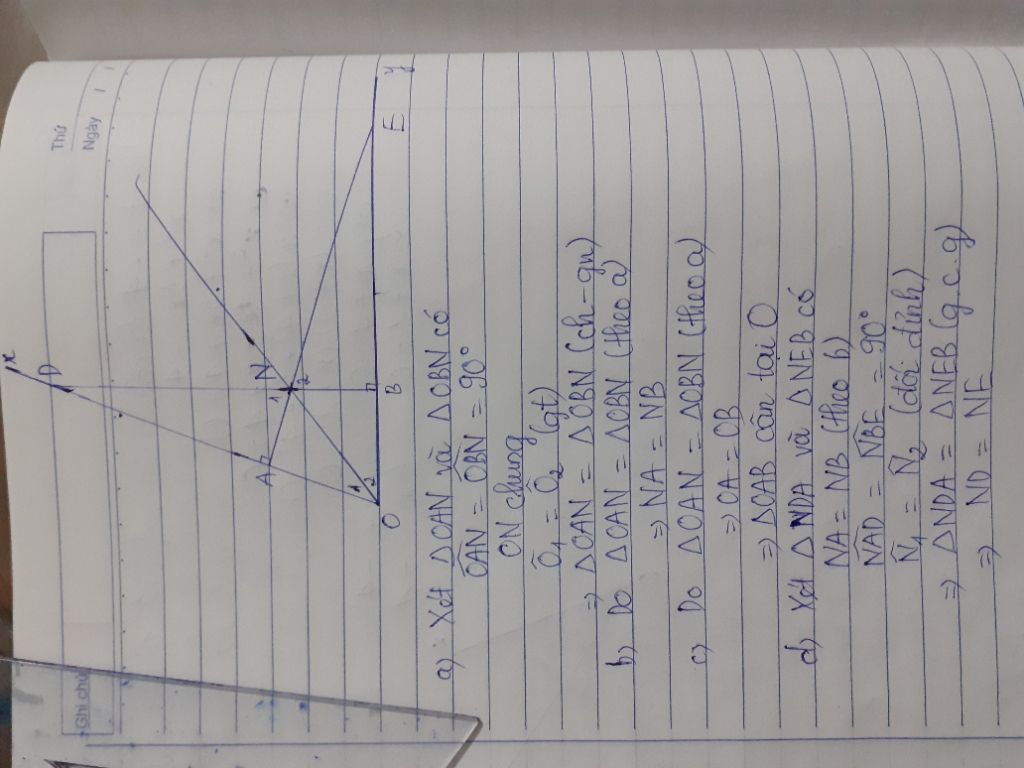 Thứ
Ngày
Ghi chú
x
D
A
N
1
2
1
2
O
B
E
y
a) Xét △OAN và △OBN có
OÂN = OB̂N = 90°
ON chung
Ô₁ = Ô₂ (gt)
⇒ △OAN = △OBN (ch - gn)
b) Do △OAN = △OBN (theo a)
⇒ NA = NB
c) Do △OAN = △OBN (theo a)
⇒ OA = OB
⇒ △OAB cân tại O
d) Xét △NDA và △NEB có
NA = NB (theo b)
NÂD = NB̂E = 90°
N̂₁ = N̂₂ (đối đỉnh)
⇒ △NDA = △NEB (g.c.g)
⇒ ND = NE